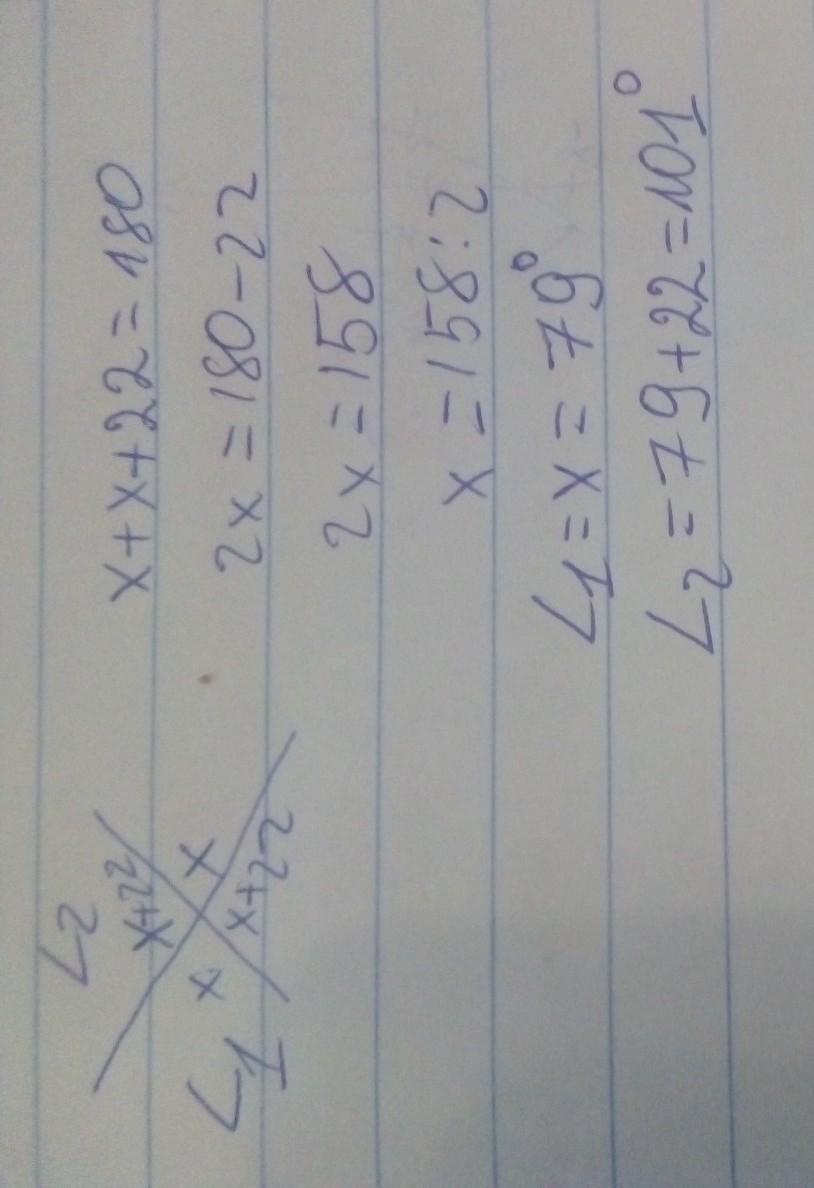 ∠2
x+22
x
x
x+22
∠1
x+x+22=180
2x=180-22
2x=158
x=158:2
∠1=x=79°
∠2=79+22=101°